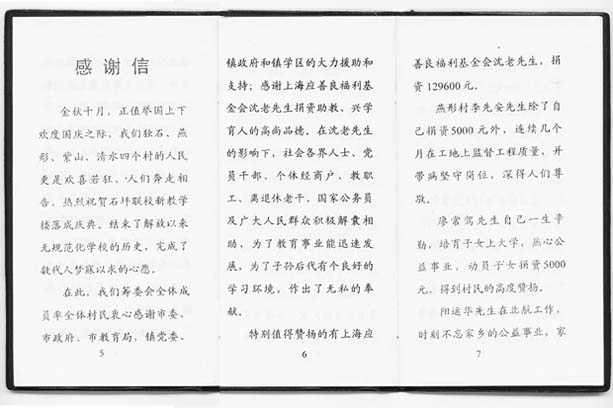 感谢信
金伏十月，正值举国上下
欢度国庆之际，我们独石、燕
形、紫山、清水四个村的人民
更是欢喜若狂，人们奔走相
告，热烈祝贺石坪联校新教学
楼落成庆典，结束了解放以来
无规范化学校的历史，完成了
数代人梦寐以求的心愿。
在此，我们筹委会全体成
员率全体村民衷心感谢市委、
市政府、市教育局，镇党委、
5
镇政府和镇学区的大力援助和
支持；感谢上海应善良福利基
金会沈老先生捐资助教、兴学
育人的高尚品德，在沈老先生
的影响下，社会各界人士、党
员干部、个体经商户、教职
工、离退休老干、国家公务员
及广大人民群众积极解囊相
助，为了教育事业能迅速发
展，为了子孙后代有个良好的
学习环境，作出了无私的奉
献。
特别值得赞扬的有上海应
6
善良福利基金会沈老先生，捐
资129600元。
燕形村李先安先生除了自
己捐资5000元外，连续几个
月在工地上监督工程质量，并
带病坚守岗位，深得人们尊
敬。
廖常驾先生自己一生辛
勤，培育子女上大学，热心公
益事业，动员子女捐资5000
元，得到村民的高度赞扬。
阳运华先生在北航工作，
时刻不忘家乡的公益事业，家
7